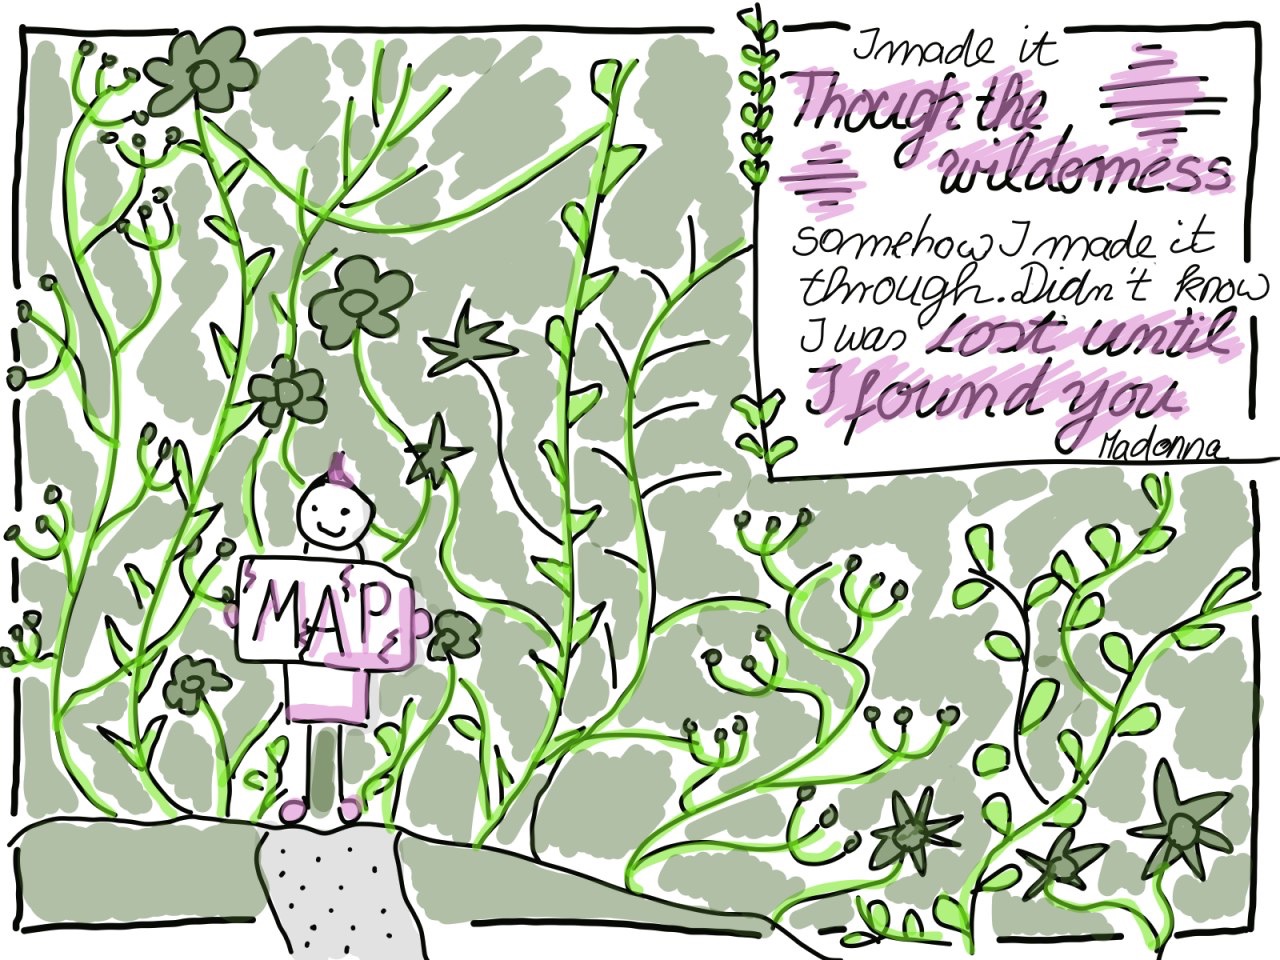 I made it
Though the
wilderness
somehow I made it
through. Didn't know
I was lost until
I found you
Madonna
MAP